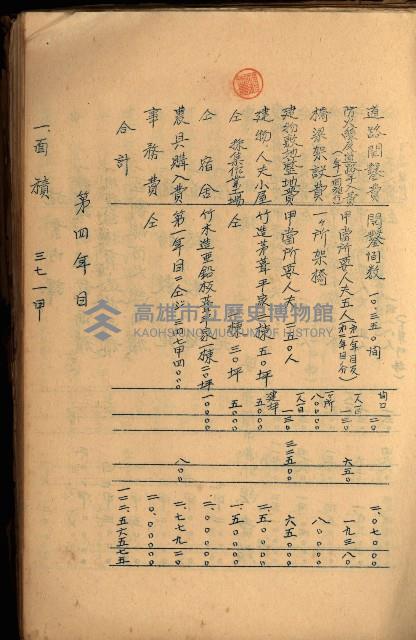 道路開鑿費 開鑿間数 一〇三五〇間 間口 二〇 二〇七〇〇〇
甲當所要人夫五人 人一日 一三〇 六五〇 一九三八〇
橋梁架設費 一ヶ所架橋 一ヶ所 八〇〇〇 八〇〇〇
建物敷地整地費 甲當所要人夫 二五〇人 人一日 一三〇 三二五〇〇 六五〇〇
建物、人夫小屋 竹造茅葺平家 棟 五〇坪 建坪 五〇〇〇 二五〇〇〇
仝 採集作業場 仝 棟 三〇坪 五〇〇〇 一五〇〇〇
仝 宿舍 竹木造亜鉛板葺平家一棟 二〇坪 一〇〇〇〇 二〇〇〇〇〇
農具購入費 第一年目ニ仝ジ 八〇〇 二七七九二〇
事務費 仝 二〇〇〇〇〇〇
合計 一二二五六五七五
第四年目
一、面積 三七一甲
高雄市立歷史博物館
KAOHSIUNG MUSEUM OF HISTORY